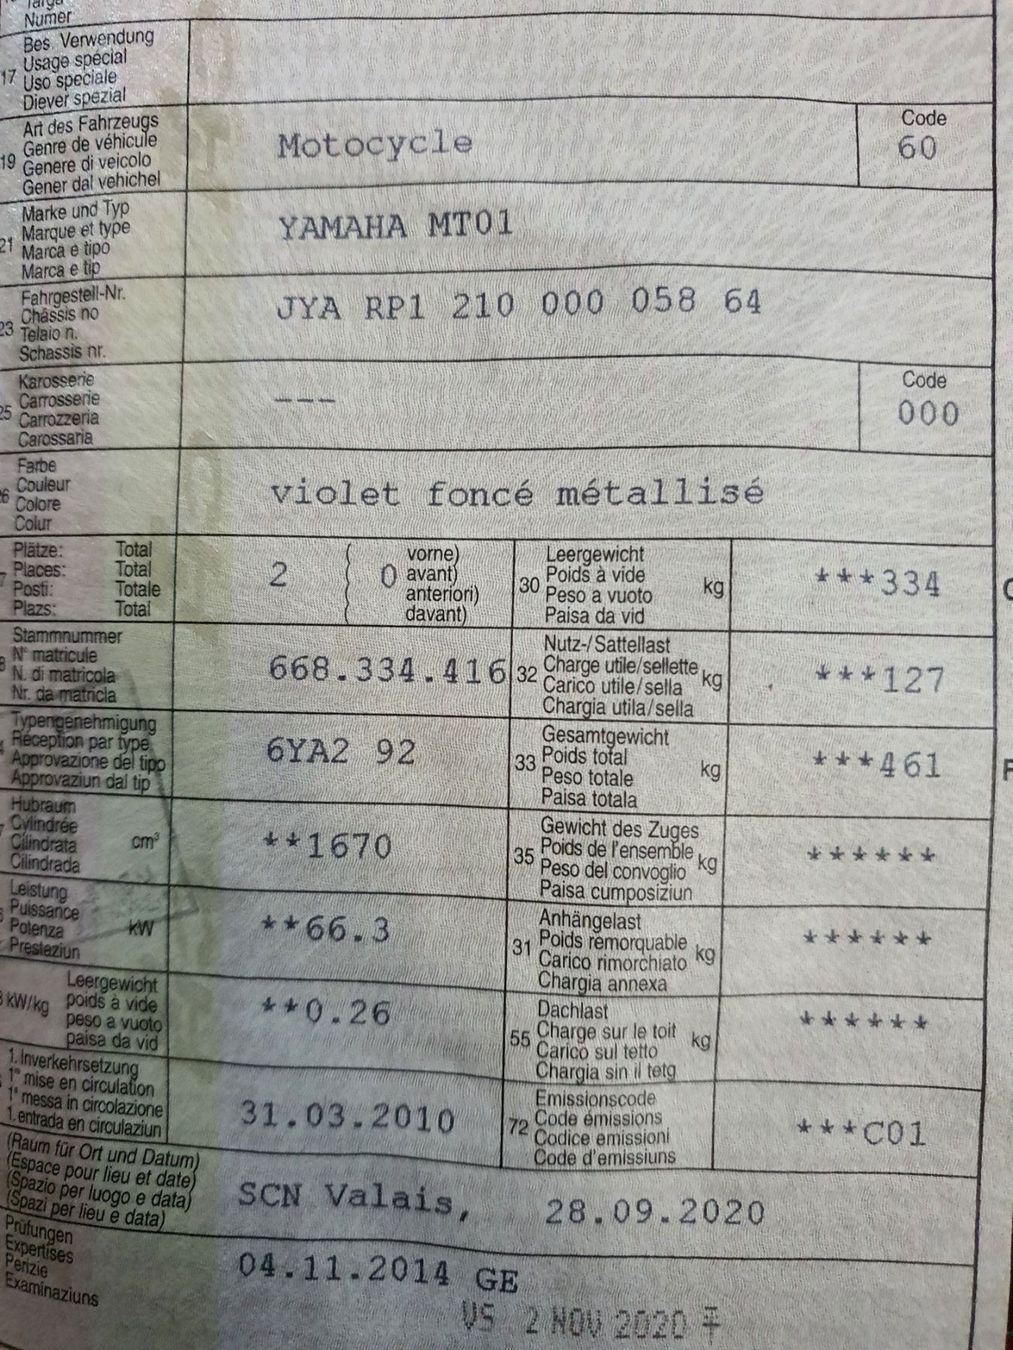 Targa
Numer
17 Bes. Verwendung
Usage spécial
Uso speciale
Diever spezial
19 Art des Fahrzeugs
Genre de véhicule
Genere di veicolo
Gener dal vehichel
Motocycle
Code
60
21 Marke und Typ
Marque et type
Marca e tipo
Marca e tip
YAMAHA MT01
23 Fahrgestell-Nr.
Châssis no
Telaio n.
Schassis nr.
JYA RP1 210 000 058 64
25 Karosserie
Carrosserie
Carrozzeria
Carossaria
---
Code
000
Farbe
Couleur
Colore
Colur
violet foncé métallisé
Plätze: Total
Places: Total
Posti: Totale
Plazs: Total
2 ( 0 vorne)
avant)
anteriori)
davant)
30 Leergewicht
Poids à vide
Peso a vuoto
Paisa da vid
kg
***334
Stammnummer
N° matricule
N. di matricola
Nr. da matricla
668.334.416
32 Nutz-/Sattellast
Charge utile/sellette
Carico utile/sella
Chargia utila/sella
kg
***127
Typengenehmigung
Réception par type
Approvazione del tipo
Approvaziun dal tip
6YA2 92
33 Gesamtgewicht
Poids total
Peso totale
Paisa totala
kg
***461
Hubraum
Cylindrée
Cilindrata
Cilindrada
cm³
**1670
35 Gewicht des Zuges
Poids de l'ensemble
Peso del convoglio
Paisa cumposiziun
kg
******
Leistung
Puissance
Potenza
Prestaziun
kW
**66.3
31 Anhängelast
Poids remorquable
Carico rimorchiato
Chargia annexa
kg
******
kW/kg
Leergewicht
poids à vide
peso a vuoto
paisa da vid
**0.26
55 Dachlast
Charge sur le toit
Carico sul tetto
Chargia sin il tetg
kg
******
1. Inverkehrsetzung
1° mise en circulation
1° messa in circolazione
1. entrada en circulaziun
31.03.2010
72 Emissionscode
Code émissions
Codice emissioni
Code d'emissiuns
***C01
(Raum für Ort und Datum)
(Espace pour lieu et date)
(Spazio per luogo e data)
(Spazi per lieu e data)
SCN Valais, 28.09.2020
Prüfungen
Expertises
Perizie
Examinaziuns
04.11.2014 GE
VS 2 NOV 2020